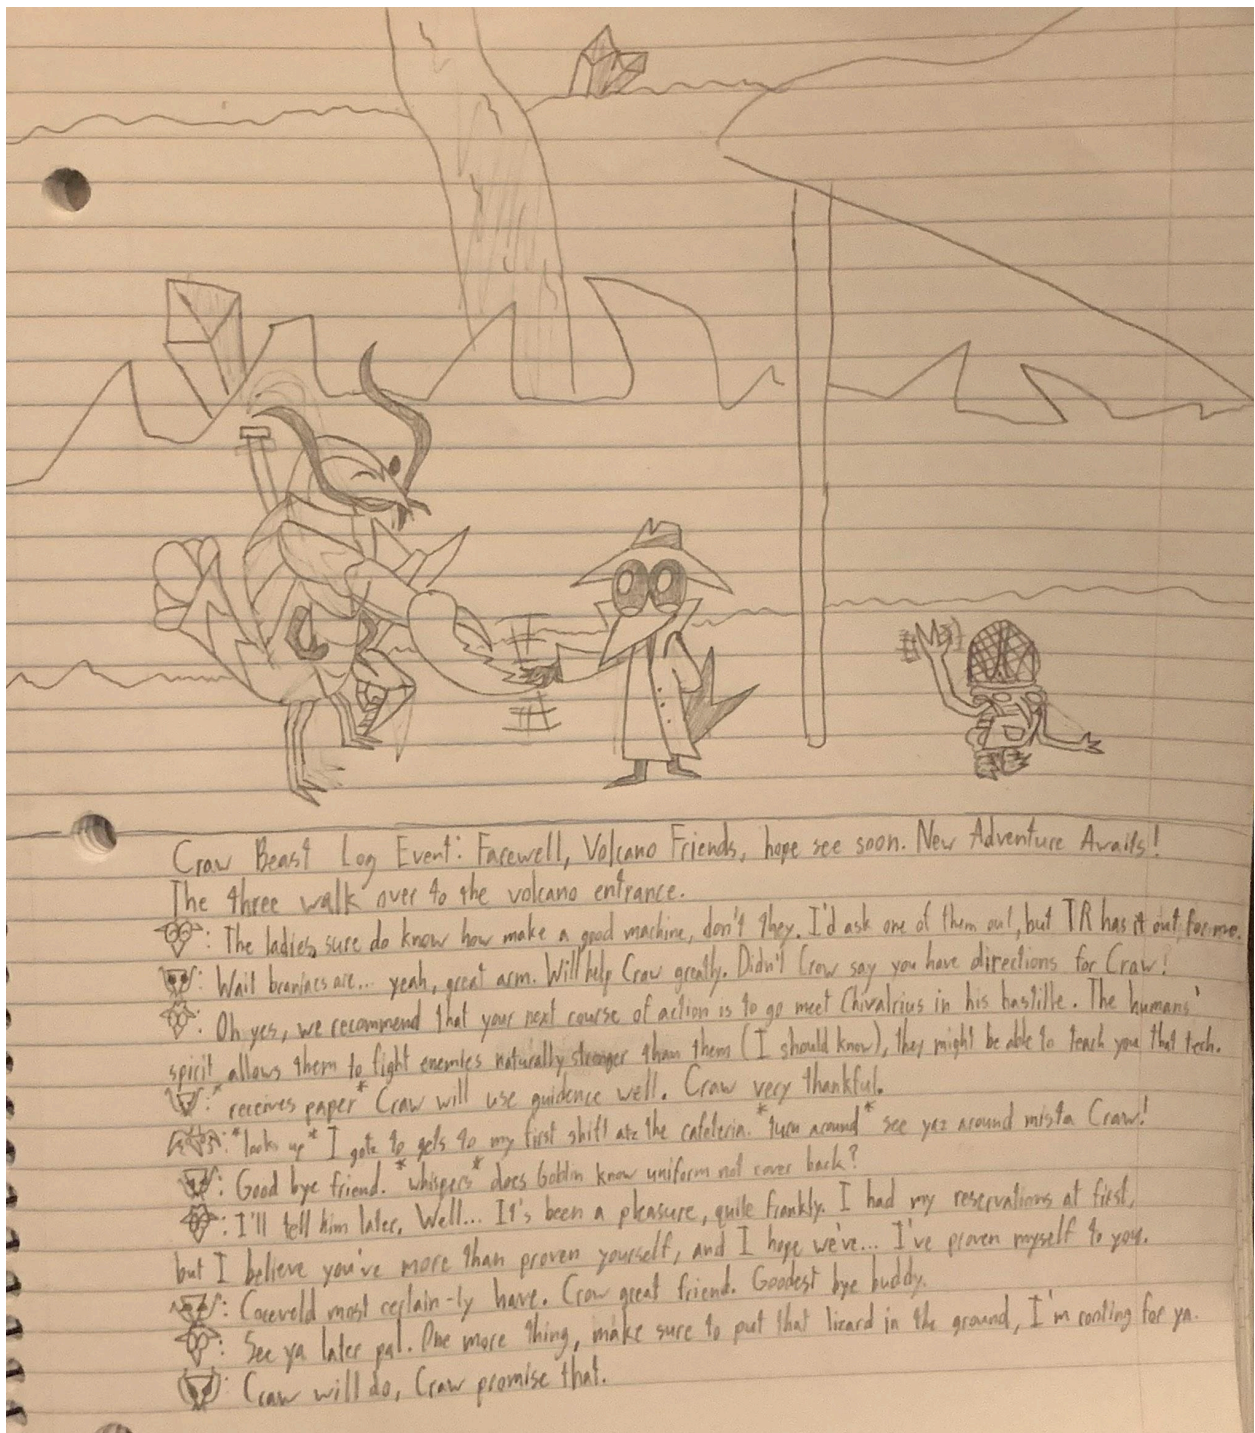 Craw Beast Log Event: Farewell, Volcano Friends, hope see soon. New Adventure Awaits!
The three walk over to the volcano entrance.
: The ladies sure do know how make a good machine, don't they. I'd ask one of them out, but TR has it out for me.
: Wait braniacs are... yeah, great arm. Will help Craw greatly. Didn't Crow say you have directions for Craw!
: Oh yes, we recommend that your next course of action is to go meet Chivalrius in his bastille. The humans'
spirit allows them to fight enemies naturally stronger than them (I should know), they might be able to teach you that tech.
: *receives paper* Craw will use guidence well. Craw very thankful.
: *looks up* I gotz to getz to my first shift atz the cafeteria. *turn around* see yaz around mista Craw!
: Good bye friend. *whispers* does Goblin know uniform not cover back?
: I'll tell him later. Well... It's been a pleasure, quite frankly. I had my reservations at first,
but I believe you've more than proven yourself, and I hope we've... I've proven myself to you.
: most certain-ly have. Crow great friend. Goodest bye buddy.
: See ya later pal. One more thing, make sure to put that lizard in the ground, I'm rooting for ya.
: Craw will do, Craw promise that.